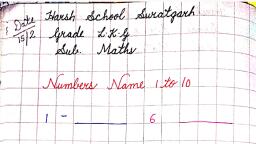 Date
15/2
Harsh School Suratgarh
Grade L.K.G
Sub. Maths
Numbers Name 1 to 10
1 - ______ 6 ______